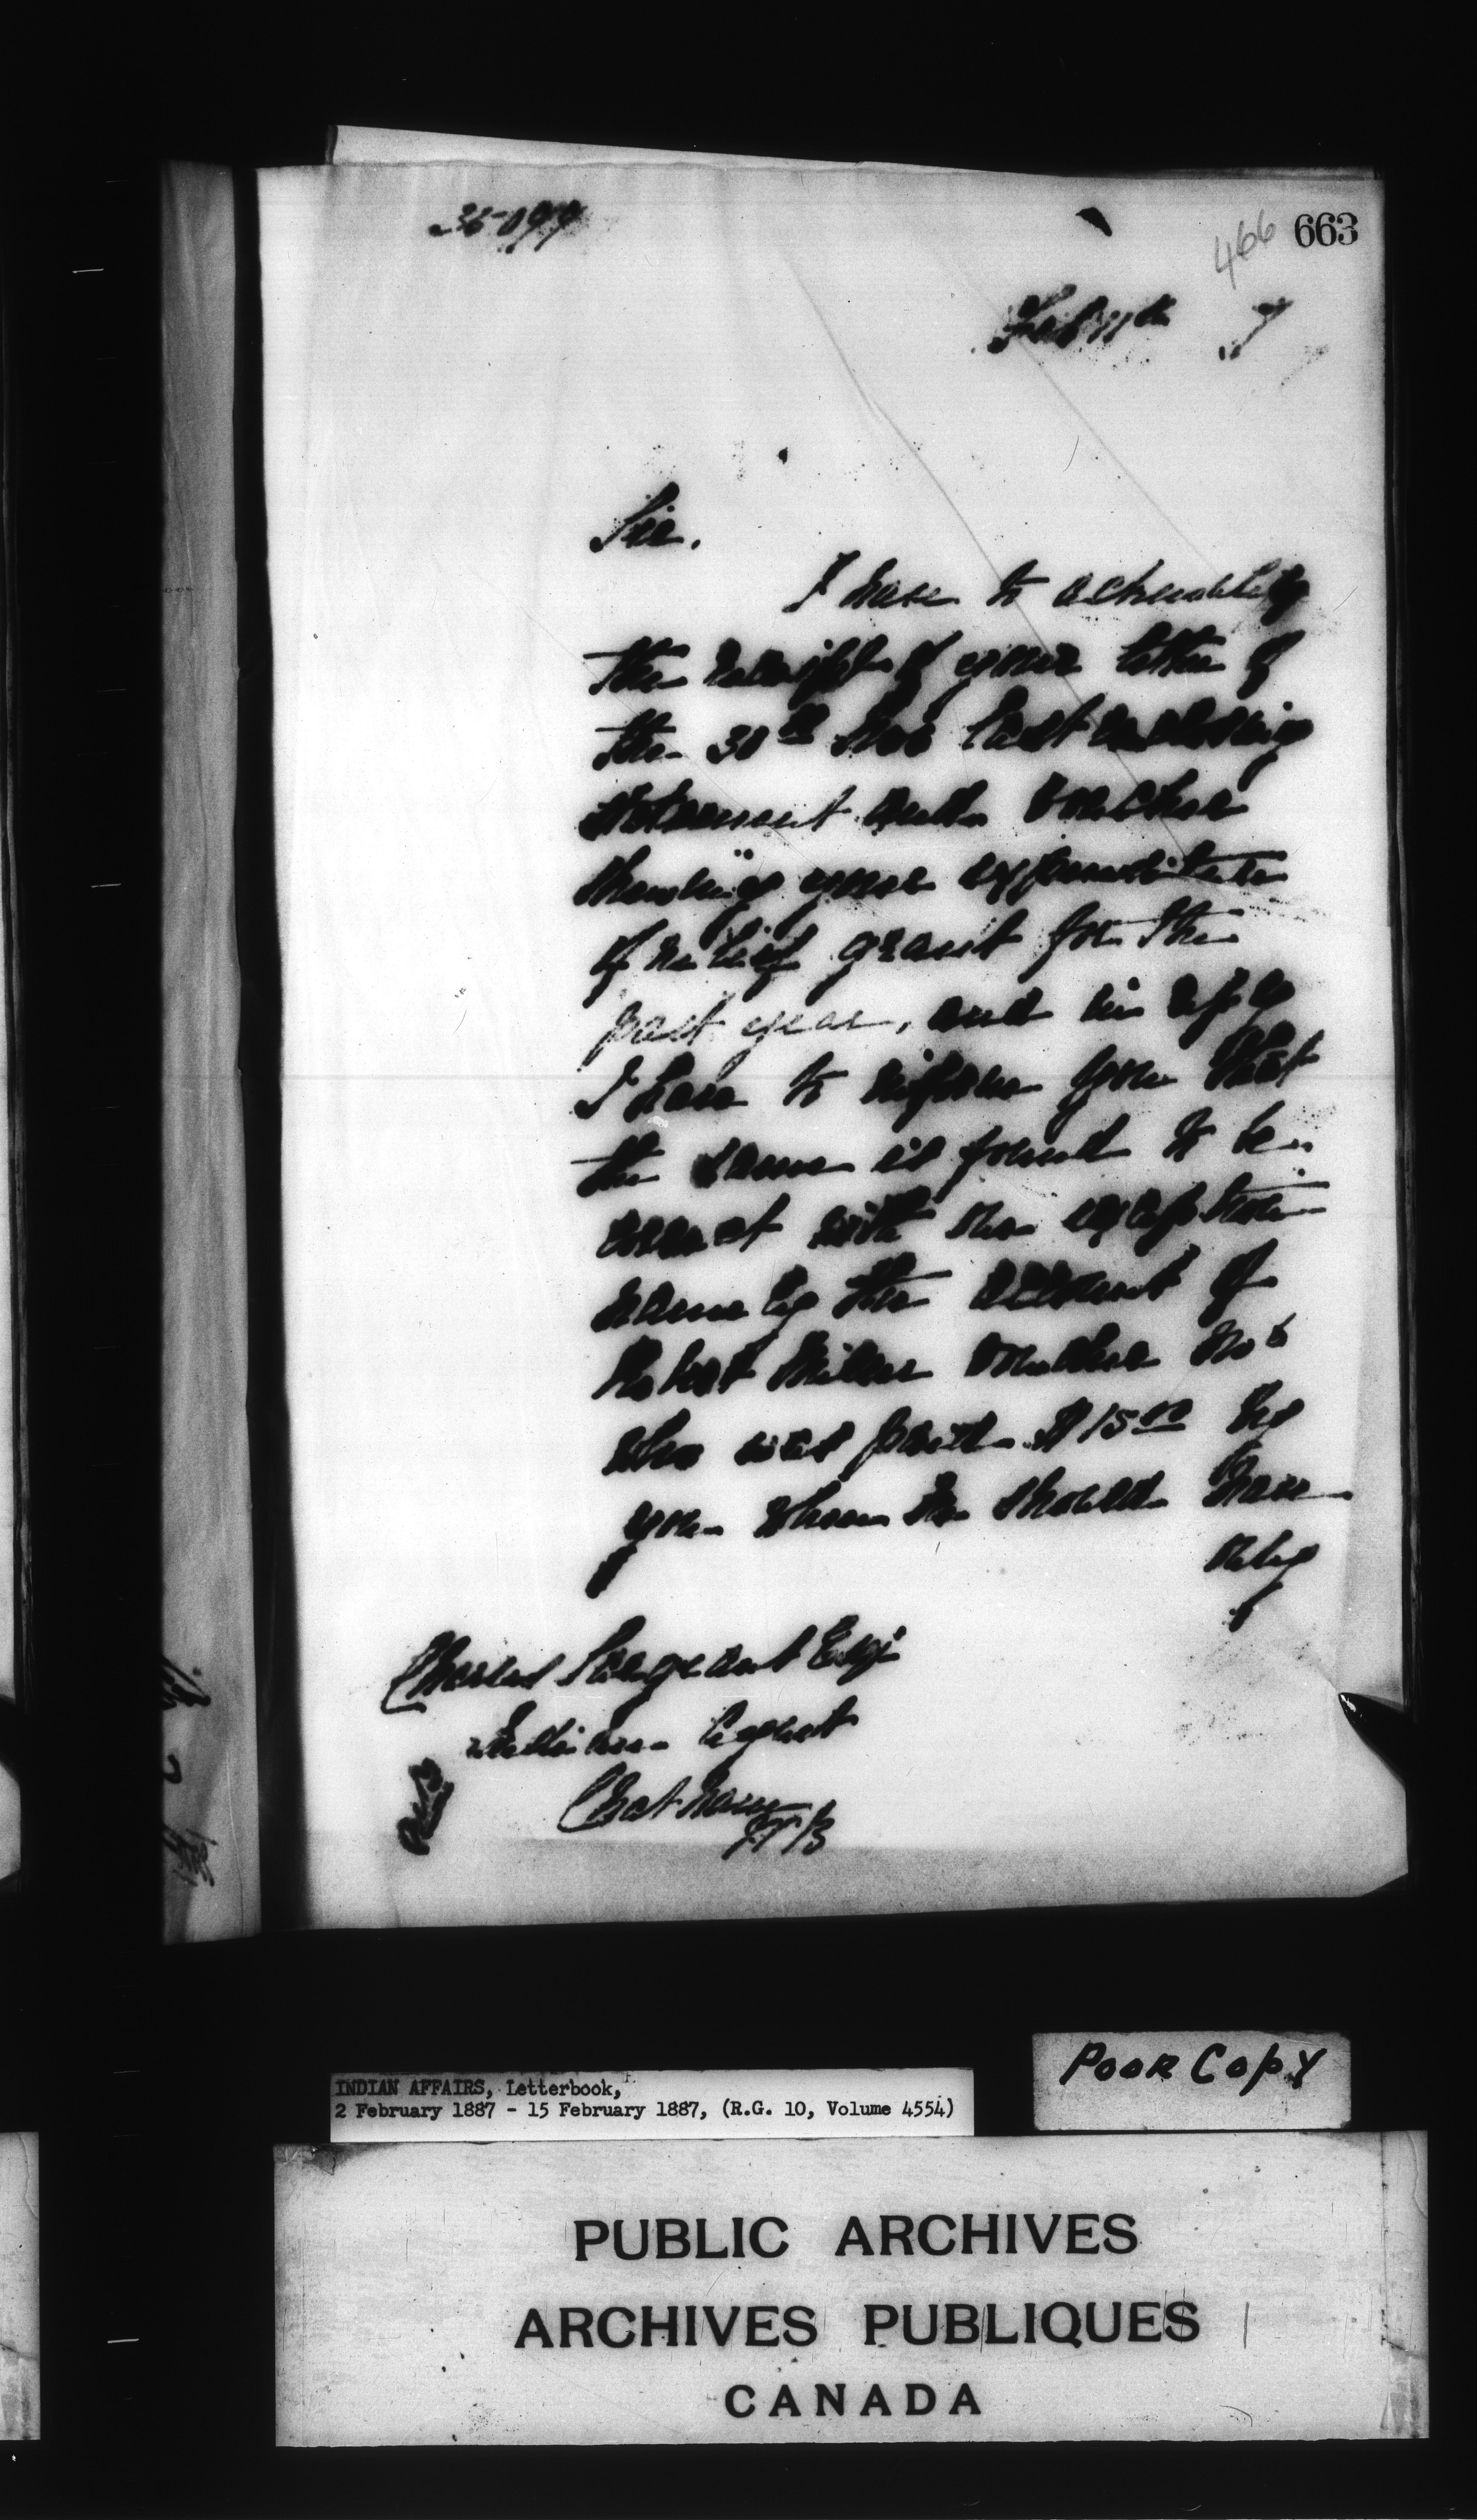 36099
466 663
Feb 11th 7
Sir,
I have to acknowledge
the receipt of your letter of
the 30th Nov last enclosing
statement and voucher
showing your expenditure
of relief grant for the
past year, and in reply
I have to inform you that
the same is found to be
correct with one exception
namely the account of
Robert Miller voucher No 6
who was paid $15.00 by
you when he should have
only
Charles Sargeant Esq
Indian Agent
Chatham
N B
INDIAN AFFAIRS, Letterbook,
2 February 1887 - 15 February 1887, (R.G. 10, Volume 4554)
POOR COPY
PUBLIC ARCHIVES
ARCHIVES PUBLIQUES
CANADA